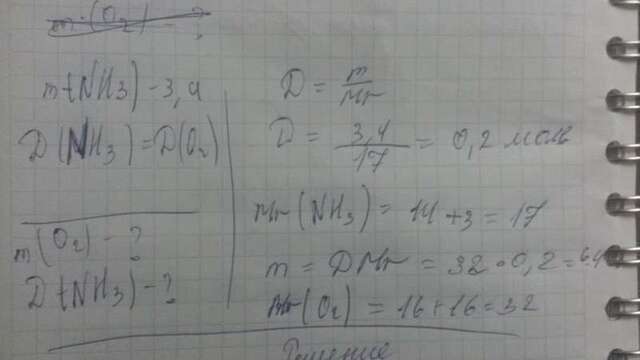 m (O₂) - ?
m (NH₃) - 3,4
D (NH₃) = D(O₂)
m (O₂) - ?
D (NH₃) - ?
D = m/Mr
D = 3,4/17 = 0,2 моль
Mr (NH₃) = 14 + 3 = 17
m = DMr = 32 · 0,2 = 6.4
Mr (O₂) = 16 + 16 = 32
Решение